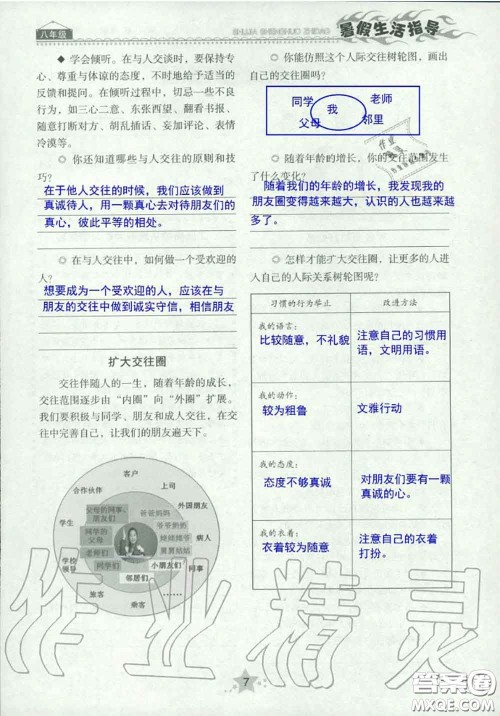 八年级
SHUJIA SHENGHUO ZHIDAO
暑假生活指导
◇ 学会倾听。在与人交谈时，要保持专
心、尊重与体谅的态度，不时地给予适当的
反馈和提问。在倾听过程中，切忌一些不良
行为，如三心二意、东张西望、翻看书报、
随意打断对方、胡乱插话、妄加评论、表情
冷漠等。
◇ 你还知道哪些与人交往的原则和技
巧？
在于他人交往的时候，我们应该做到
真诚待人，用一颗真心去对待朋友们的
真心，彼此平等的相处。
◇ 在与人交往中，如何做一个受欢迎的
人？
想要成为一个受欢迎的人，应该在与
朋友的交往中做到诚实守信，相信朋友
扩大交往圈
交往伴随人的一生，随着年龄的成长，
交往范围逐步由“内圈”向“外圈”扩展。
我们要积极与同学、朋友和成人交往，在交
往中完善自己，让我们的朋友遍天下。
客户
合作伙伴
上司
外国朋友
父母的同事、
朋友们
爸爸妈妈
爷爷奶奶
学生
同学的
父母
病人
老师们
舅舅姑姑
学校
领导
同学们
小朋友们
同事
邻居们
旅客
乘客
◇ 你能仿照这个人际交往树轮图，画出
自己的交往圈吗？
同学
我
老师
父母
邻里
◇ 随着年龄的增长，你的交往范围发生
了什么变化？
随着我们的年龄的增长，我发现我的
朋友圈变得越来越大，认识的人也越来越
多了。
◇ 怎样才能扩大交往圈，让更多的人进
入自己的人际关系树轮图呢？
习惯的行为举止
改进方法
我的语言：
比较随意，不礼貌
注意自己的习惯用
语，文明用语。
我的动作：
较为粗鲁
文雅行动
我的态度：
态度不够真诚
对朋友们要有一颗
真诚的心。
我的衣着：
衣着较为随意
注意自己的衣着
打扮。
作业精灵
7
答案圈
MXQE.COM